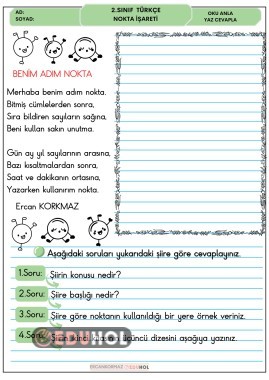 AD:
SOYAD:
2.SINIF TÜRKÇE
NOKTA İŞARETİ
OKU ANLA
YAZ CEVAPLA
BENİM ADIM NOKTA
Merhaba benim adım nokta.
Bitmiş cümlelerden sonra,
Sıra bildiren sayıların sağına,
Beni kullan sakın unutma.
Gün ay yıl sayılarının arasına,
Bazı kısaltmalardan sonra,
Saat ve dakikanın ortasına,
Yazarken kullanırım nokta.
Ercan KORKMAZ
Aşağıdaki soruları yukarıdaki şiire göre cevaplayınız.
1.Soru: Şiirin konusu nedir?
2.Soru: Şiire başlığı nedir?
3.Soru: Şiire göre noktanın kullanıldığı bir yere örnek veriniz.
4.Soru: Şiirin ikinci kıtasının üçüncü dizesini aşağıya yazınız.
EDUHOL